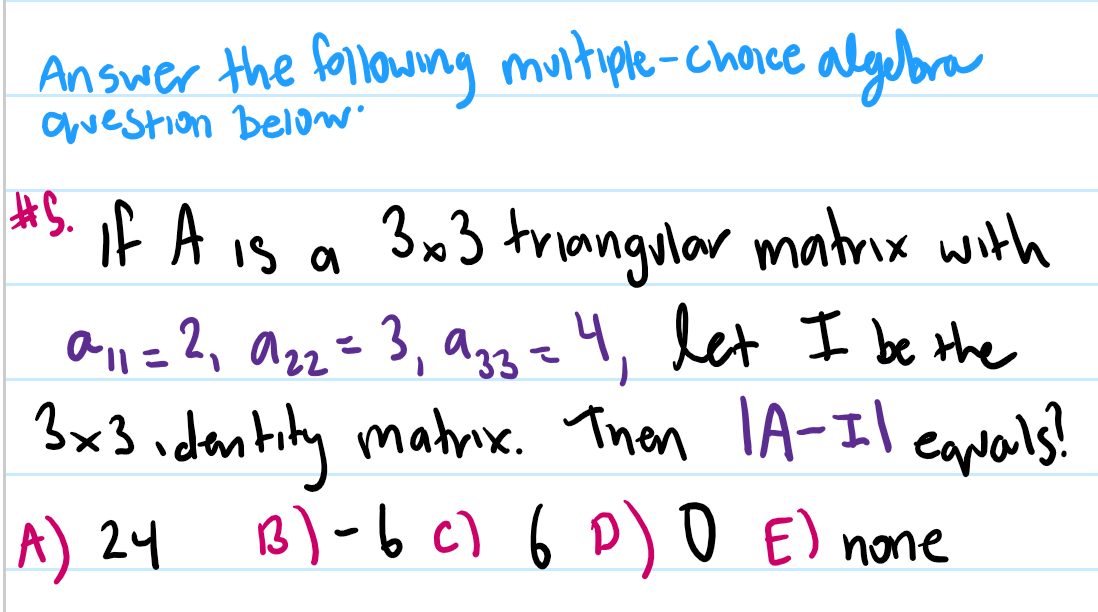 Answer the following multiple-choice algebra
question below:
#5. If A is a 3x3 triangular matrix with
a₁₁ = 2, a₂₂ = 3, a₃₃ = 4, let I be the
3x3 identity matrix. Then |A-I| equals?
A) 24 B) -6 C) 6 D) 0 E) none